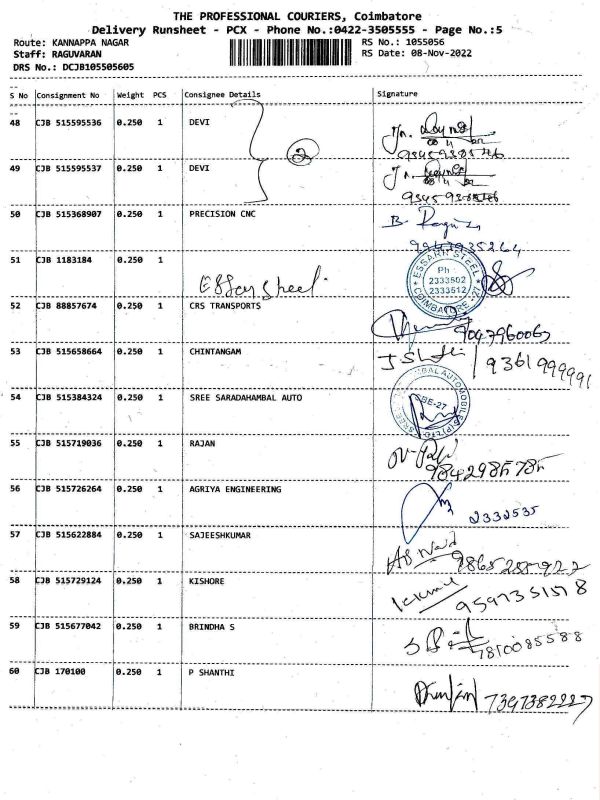 THE PROFESSIONAL COURIERS, Coimbatore
Delivery Runsheet - PCX - Phone No.:0422-3505555 - Page No.:5
Route: KANNAPPA NAGAR RS No.: 1055056
Staff: RAGUVARAN RS Date: 08-Nov-2022
DRS No.: DCJB105505605
S No Consignment No Weight PCS Consignee Details Signature
48 CJB 515595536 0.250 1 DEVI
2
49 CJB 515595537 0.250 1 DEVI
50 CJB 515368907 0.250 1 PRECISION CNC
51 CJB 1183184 0.250 1
ESSARN STEEL
Ph :
2333502
2333512
COIMBATORE
52 CJB 88857674 0.250 1 CRS TRANSPORTS
53 CJB 515658664 0.250 1 CHINTANGAM
9361999991
54 CJB 515384324 0.250 1 SREE SARADAHAMBAL AUTO
CBE-27
55 CJB 515719036 0.250 1 RAJAN
56 CJB 515726264 0.250 1 AGRIYA ENGINEERING
2332535
57 CJB 515622884 0.250 1 SAJEESHKUMAR
58 CJB 515729124 0.250 1 KISHORE
9597351578
59 CJB 515677042 0.250 1 BRINDHA S
7810085588
60 CJB 170100 0.250 1 P SHANTHI
7397382227